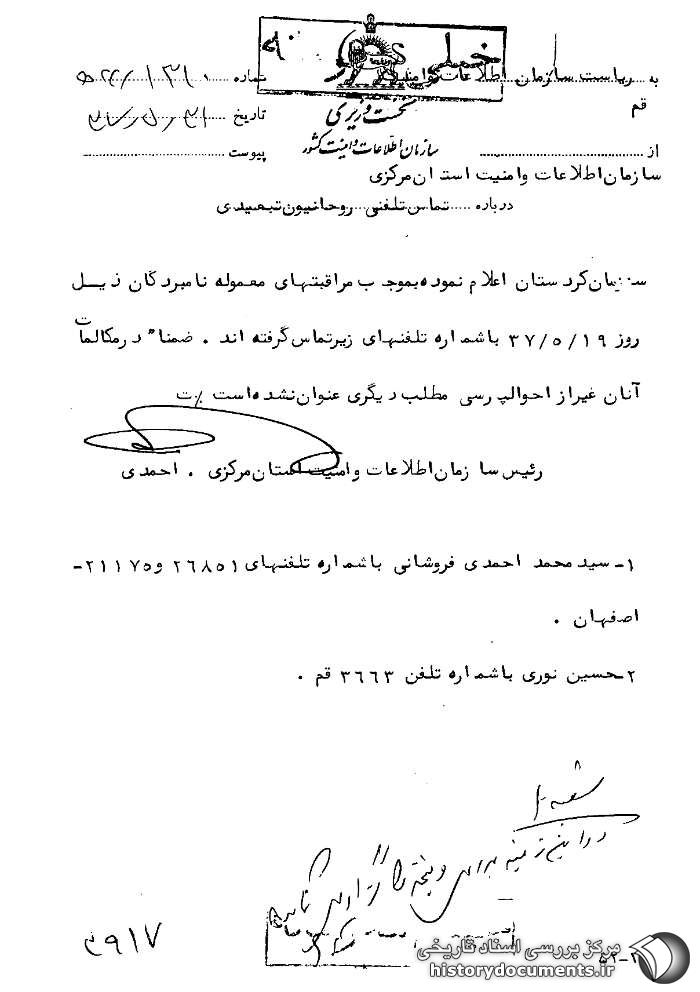 به ریاست سازمان اطلاعات و امنیت
شماره
قم
نخست وزیری
تاریخ
از
سازمان اطلاعات و امنیت کشور
پیوست
سازمان اطلاعات وامنیت استان مرکزی
درباره تماس تلفنی روحانیون تبعیدی
سازمان کردستان اعلام نموده بموجب مراقبتهای معموله نامبردگان ذیل
روز ۳۷/۵/۱۹ باشماره تلفنهای زیرتماس گرفته اند . ضمنا" درمکالمات
آنان غیراز احوالپرسی مطلب دیگری عنوان نشده است
رئیس سازمان اطلاعات وامنیت استان مرکزی . احمدی
۱- سید محمد احمدی فروشانی باشماره تلفنهای ۲۶۸۵۱ و ۲۱۱۷۵-
اصفهان .
۲- حسین نوری باشماره تلفن ۳۶۶۳ قم .
در این زمینه بررسی و نتیجه را گزارش نمائید
۳۹۱۷
مرکز بررسی اسناد تاریخی
historydocuments.ir